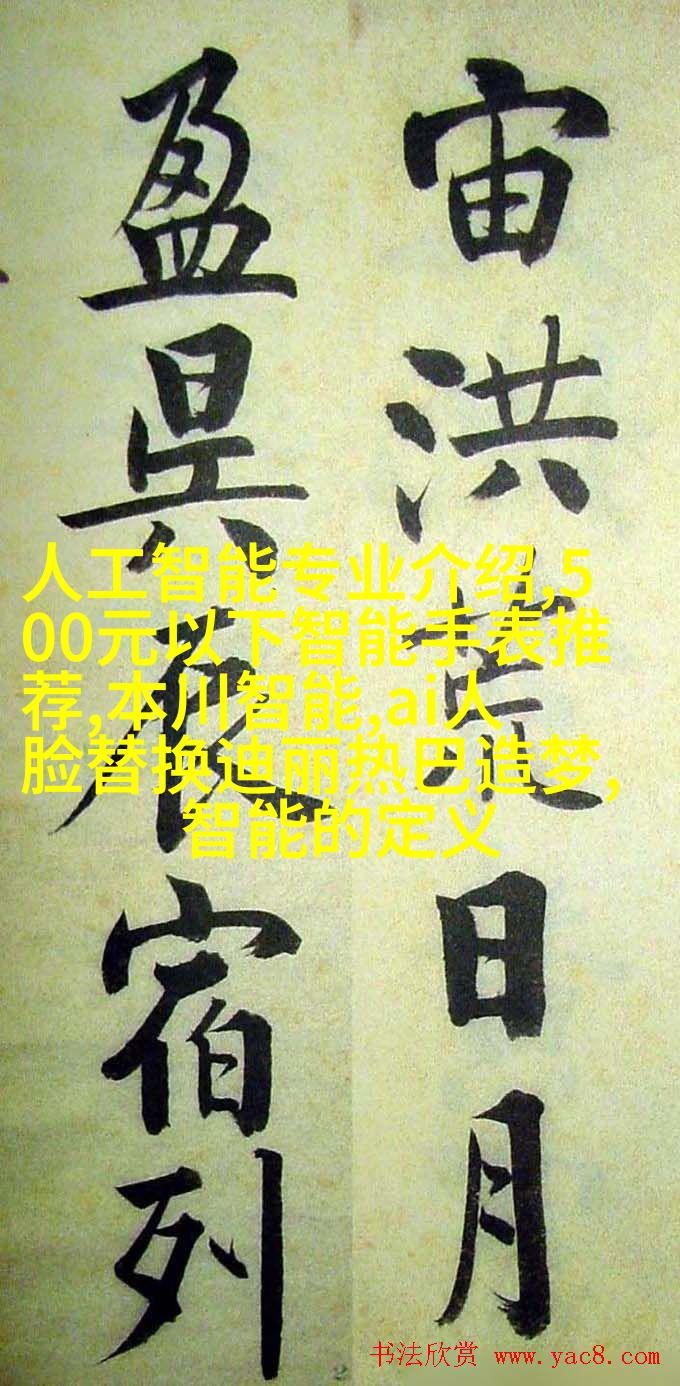 宙洪荒日月
盈昃辰宿列
人工智能专业介绍,5
00元以下智能手表推
荐,本川智能,ai人
脸替换迪丽热巴造梦,
智能的定义
书法欣赏 www.yac8.com